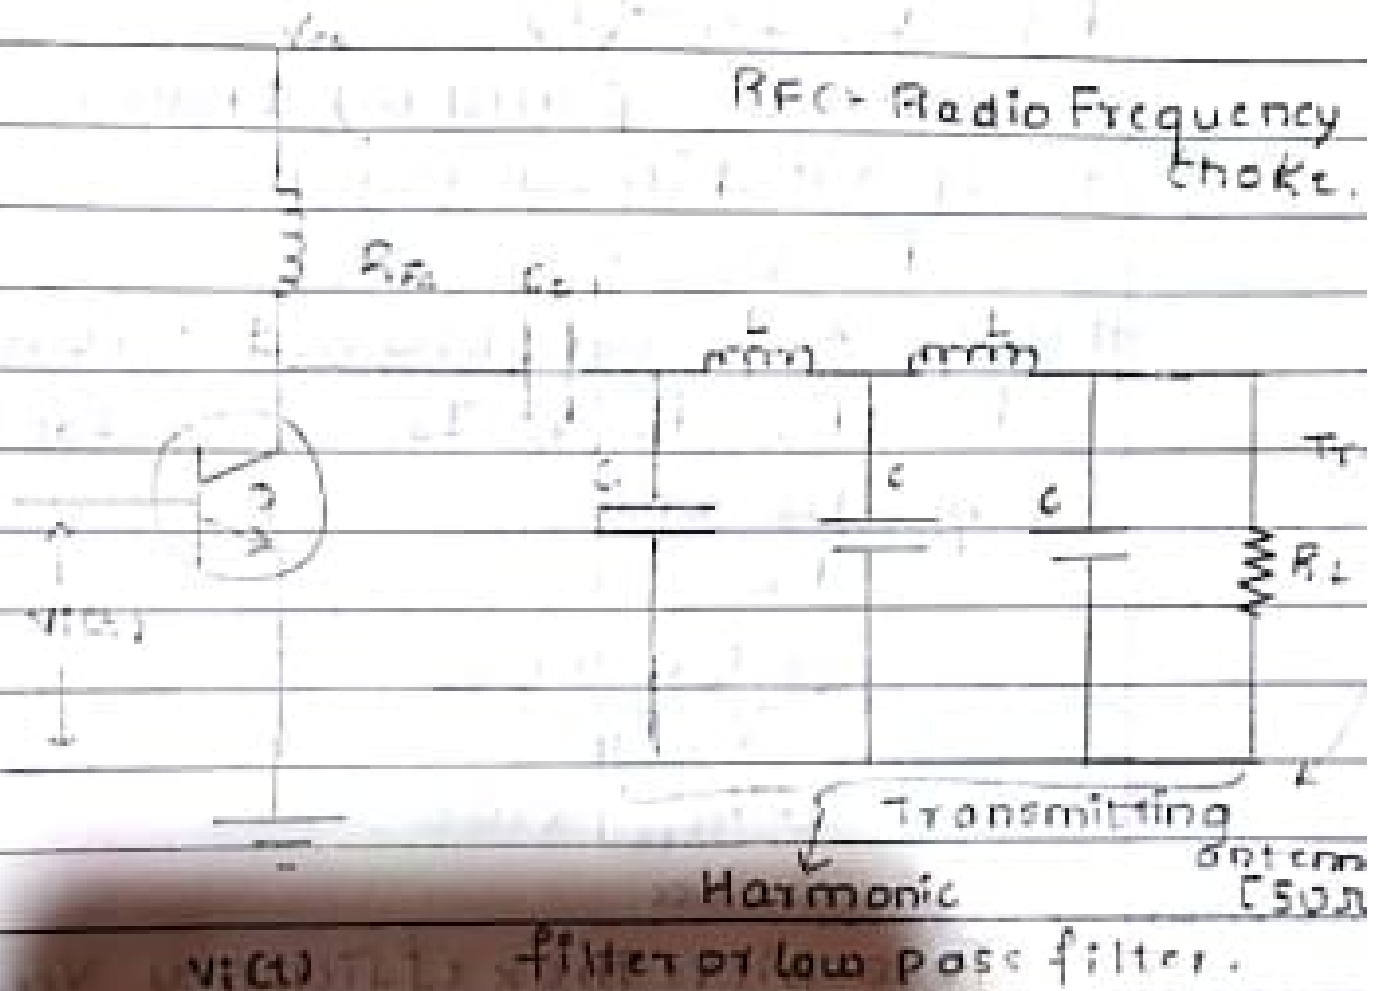 RFC - Radio Frequency
choke.
L L
C C C
RL
Vi(t)
Transmitting
antenn
[50Ω
Harmonic
filter or low pass filter.
Vi(t)